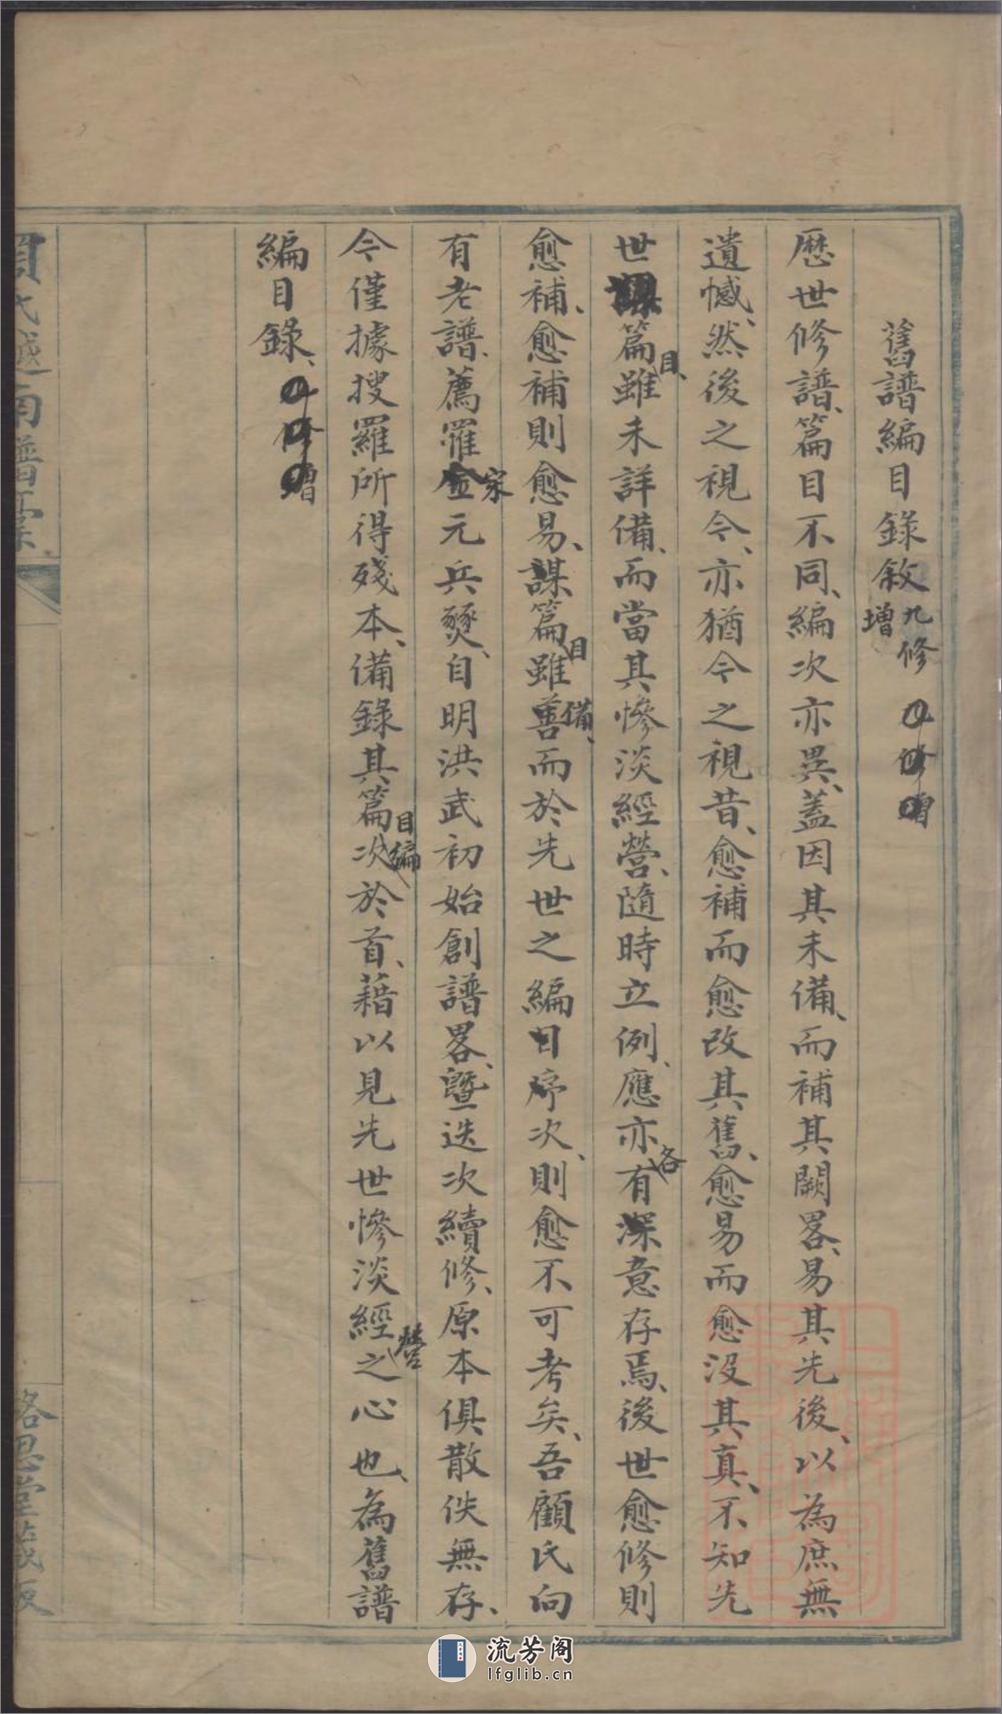 舊譜編目錄敘 九修增
歷世修譜、篇目不同、編次亦異、蓋因其未備、而補其闕畧、易其先後、以為庶無
遺憾、然後之視今、亦猶今之視昔、愈補而愈改其舊、愈易而愈沒其真、不知先
世篇目、雖未詳備、而當其慘淡經營、隨時立例、應亦各有深意存焉、後世愈修則
愈補、愈補則愈易、謀篇目雖備、而於先世之編目序次、則愈不可考矣、吾顧氏向
有老譜、薦罹宋元兵燹、自明洪武初始創譜畧、暨迭次續修、原本俱散佚無存、
今僅據搜羅所得殘本、備錄其篇目編次於首、藉以見先世慘淡經營之心也、為舊譜
編目錄、
氏越南譜
思堂
流芳阁
lfglib.cn